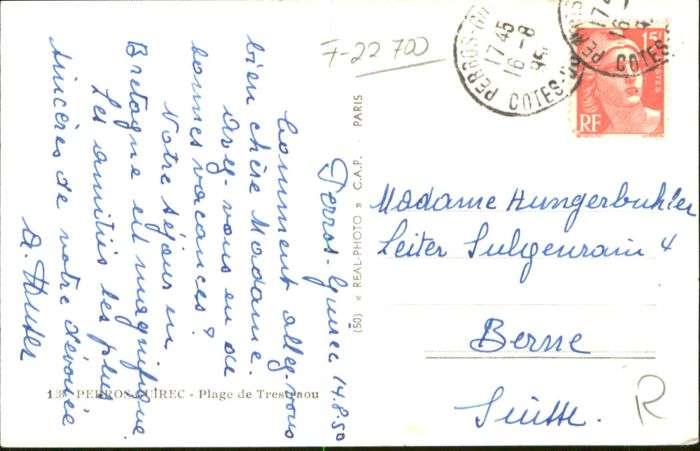 Perros-Guirec 14.8.50
Comment allez-vous
bien chère Madame.
Avez-vous eu de
bonnes vacances?
Notre séjour en
Bretagne est magnifique.
Les amitiés les plus
sincères de votre dévouée
F-22 700
PERROS-GU
17 45
16-8
COTES-DU
PERROS
17
16
COTES
15F
RF
Madame Hungerbuhler
Leiter Sulgenrain 4
Berne
Suisse.
R
(50) « REAL-PHOTO » C.A.P. PARIS
PERROS-GUIREC - Plage de Trestraou